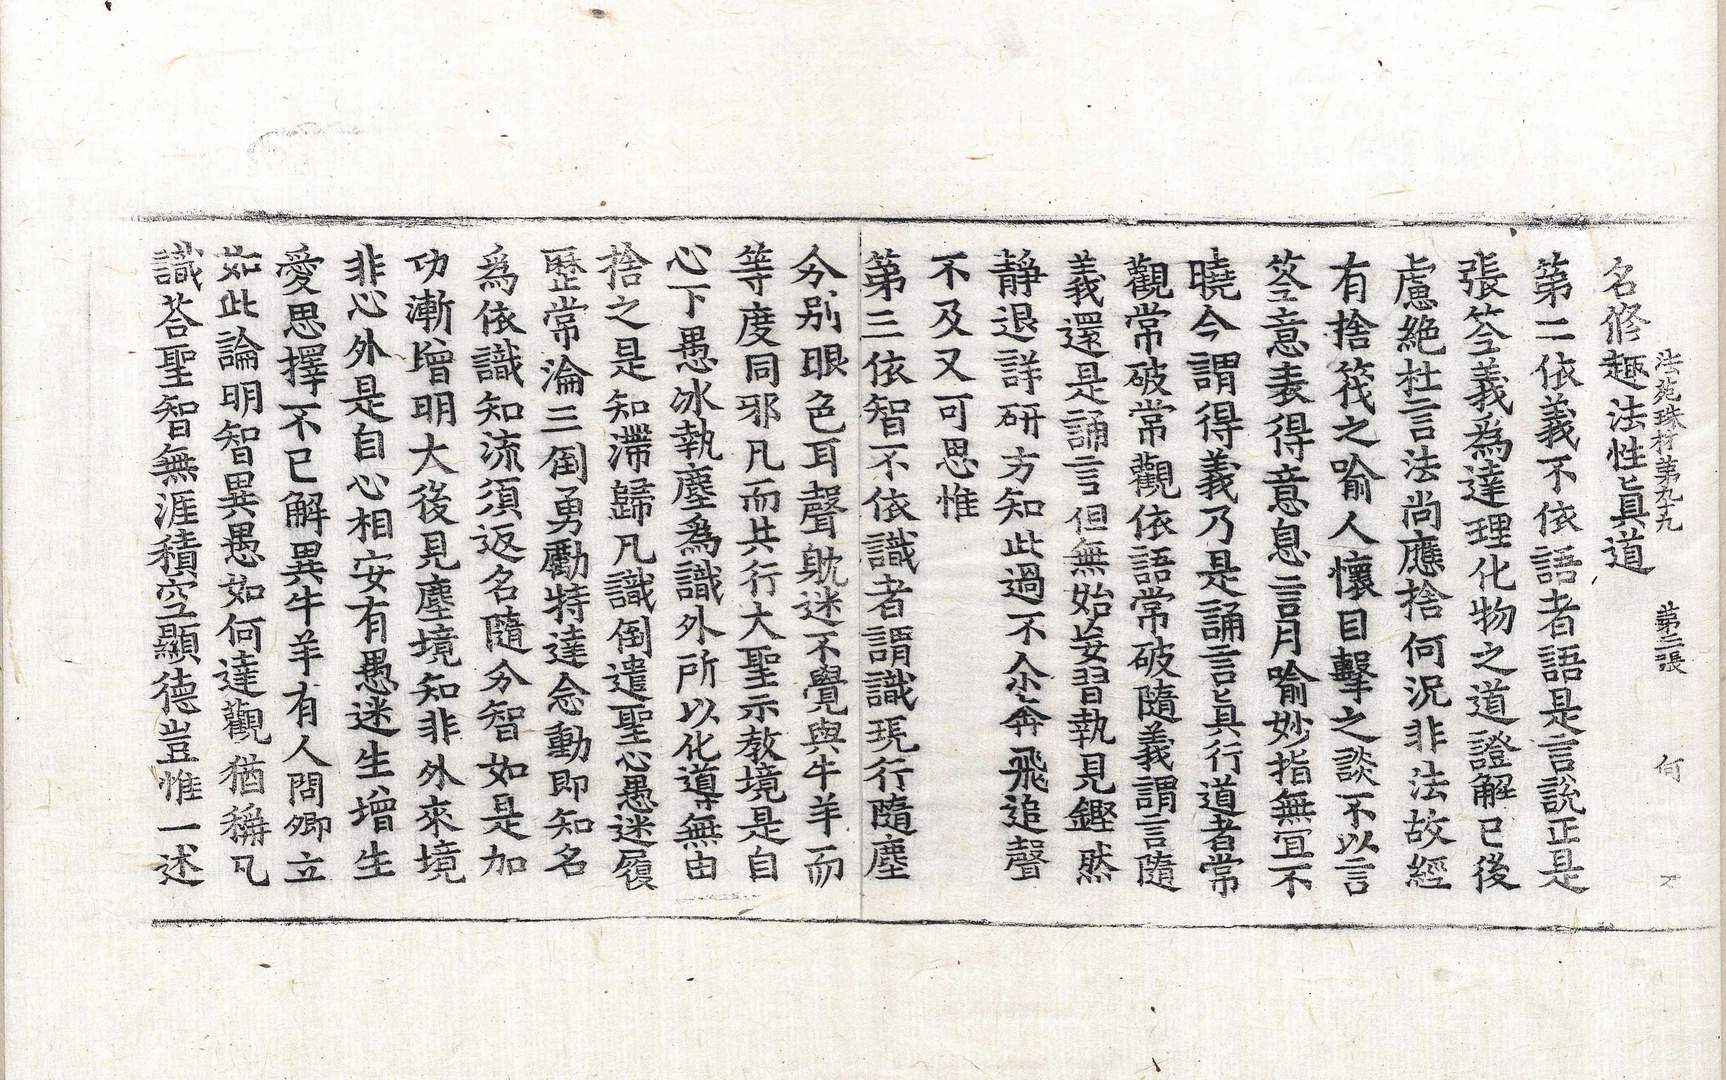 法苑珠林第九十九 第三張 何
名修趣法性真道
第二依義不依語者語是言說正是
張筌義為達理化物之道證解已後
慮絕杜言法尚應捨何況非法故經
有捨筏之喻人懷目擊之談不以言
筌意表得意息言月喻妙指無宜不
曉今謂得義乃是誦言真行道者常
觀常破常觀依語常破隨義謂言隨
義還是誦言但無始妄習執見鏗然
靜退詳研方知此過不尒奔飛追聲
不及又可思惟
第三依智不依識者謂識現行隨塵
分別眼色耳聲躭迷不覺與牛羊而
等度同邪凡而共行大聖示教境是自
心下愚氷執塵為識外所以化導無由
捨之是知滯歸凡識倒遣聖心愚迷履
歷常淪三倒勇勵特達念動即知名
為依識知流須返名隨分智如是加
功漸增明大後見塵境知非外來境
非心外是自心相安有愚迷生增生
愛思擇不已解異牛羊有人問卿立
如此論明智異愚如何達觀猶稱凡
識荅聖智無涯積空顯德豈惟一述